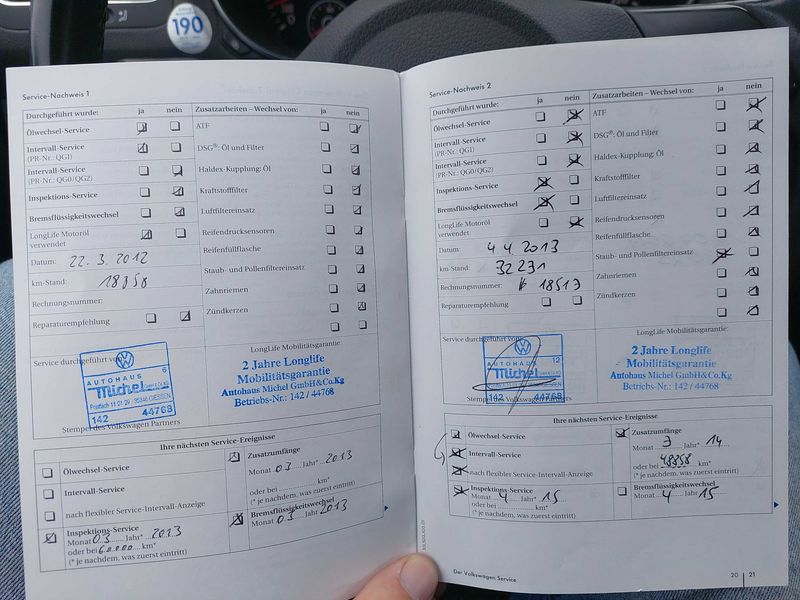 190
Service-Nachweis 1
Durchgeführt wurde: ja nein
Ölwechsel-Service
Intervall-Service
(PR-Nr.: QG1)
Intervall-Service
(PR-Nr.: QG0/QG2)
Inspektions-Service
Bremsflüssigkeitswechsel
LongLife Motoröl
verwendet
Datum: 22.3.2012
km-Stand: 18858
Rechnungsnummer:
Reparaturempfehlung
Zusatzarbeiten – Wechsel von: ja nein
ATF
DSG®: Öl und Filter
Haldex-Kupplung: Öl
Kraftstofffilter
Luftfiltereinsatz
Reifendrucksensoren
Reifenfüllflasche
Staub- und Pollenfiltereinsatz
Zahnriemen
Zündkerzen
Service durchgeführt von:
6
AUTOHAUS
Michel GMBH & CO. KG
142 44768
Stempel des Volkswagen Partners
LongLife Mobilitätsgarantie:
2 Jahre Longlife
Mobilitätsgarantie
Autohaus Michel GmbH&Co.Kg
Betriebs-Nr.: 142 / 44768
Ihre nächsten Service-Ereignisse
Ölwechsel-Service
Intervall-Service
nach flexibler Service-Intervall-Anzeige
Inspektions-Service
Monat 03 Jahr* 2013
oder bei 60000 km*
(* je nachdem, was zuerst eintritt)
Zusatzumfänge
Monat 03 Jahr* 2013
oder bei km*
(* je nachdem, was zuerst eintritt)
Bremsflüssigkeitswechsel
Monat 03 Jahr 2013
Service-Nachweis 2
Durchgeführt wurde: ja nein
Ölwechsel-Service
Intervall-Service
(PR-Nr.: QG1)
Intervall-Service
(PR-Nr.: QG0/QG2)
Inspektions-Service
Bremsflüssigkeitswechsel
LongLife Motoröl
verwendet
Datum: 4 4 2013
km-Stand: 32231
Rechnungsnummer: 18513
Reparaturempfehlung
Zusatzarbeiten – Wechsel von: ja nein
ATF
DSG®: Öl und Filter
Haldex-Kupplung: Öl
Kraftstofffilter
Luftfiltereinsatz
Reifendrucksensoren
Reifenfüllflasche
Staub- und Pollenfiltereinsatz
Zahnriemen
Zündkerzen
Service durchgeführt von:
12
AUTOHAUS
Michel GMBH & CO. KG
142 44768
Stempel des Volkswagen Partners
LongLife Mobilitätsgarantie:
2 Jahre Longlife
Mobilitätsgarantie
Autohaus Michel GmbH&Co.Kg
Betriebs-Nr.: 142 / 44768
Ihre nächsten Service-Ereignisse
Ölwechsel-Service
Intervall-Service
nach flexibler Service-Intervall-Anzeige
Inspektions-Service
Monat 4 Jahr* 15
oder bei km*
(* je nachdem, was zuerst eintritt)
Zusatzumfänge
Monat 3 Jahr* 14
oder bei 48858 km*
(* je nachdem, was zuerst eintritt)
Bremsflüssigkeitswechsel
Monat 4 Jahr 15
Der Volkswagen Service
20 21